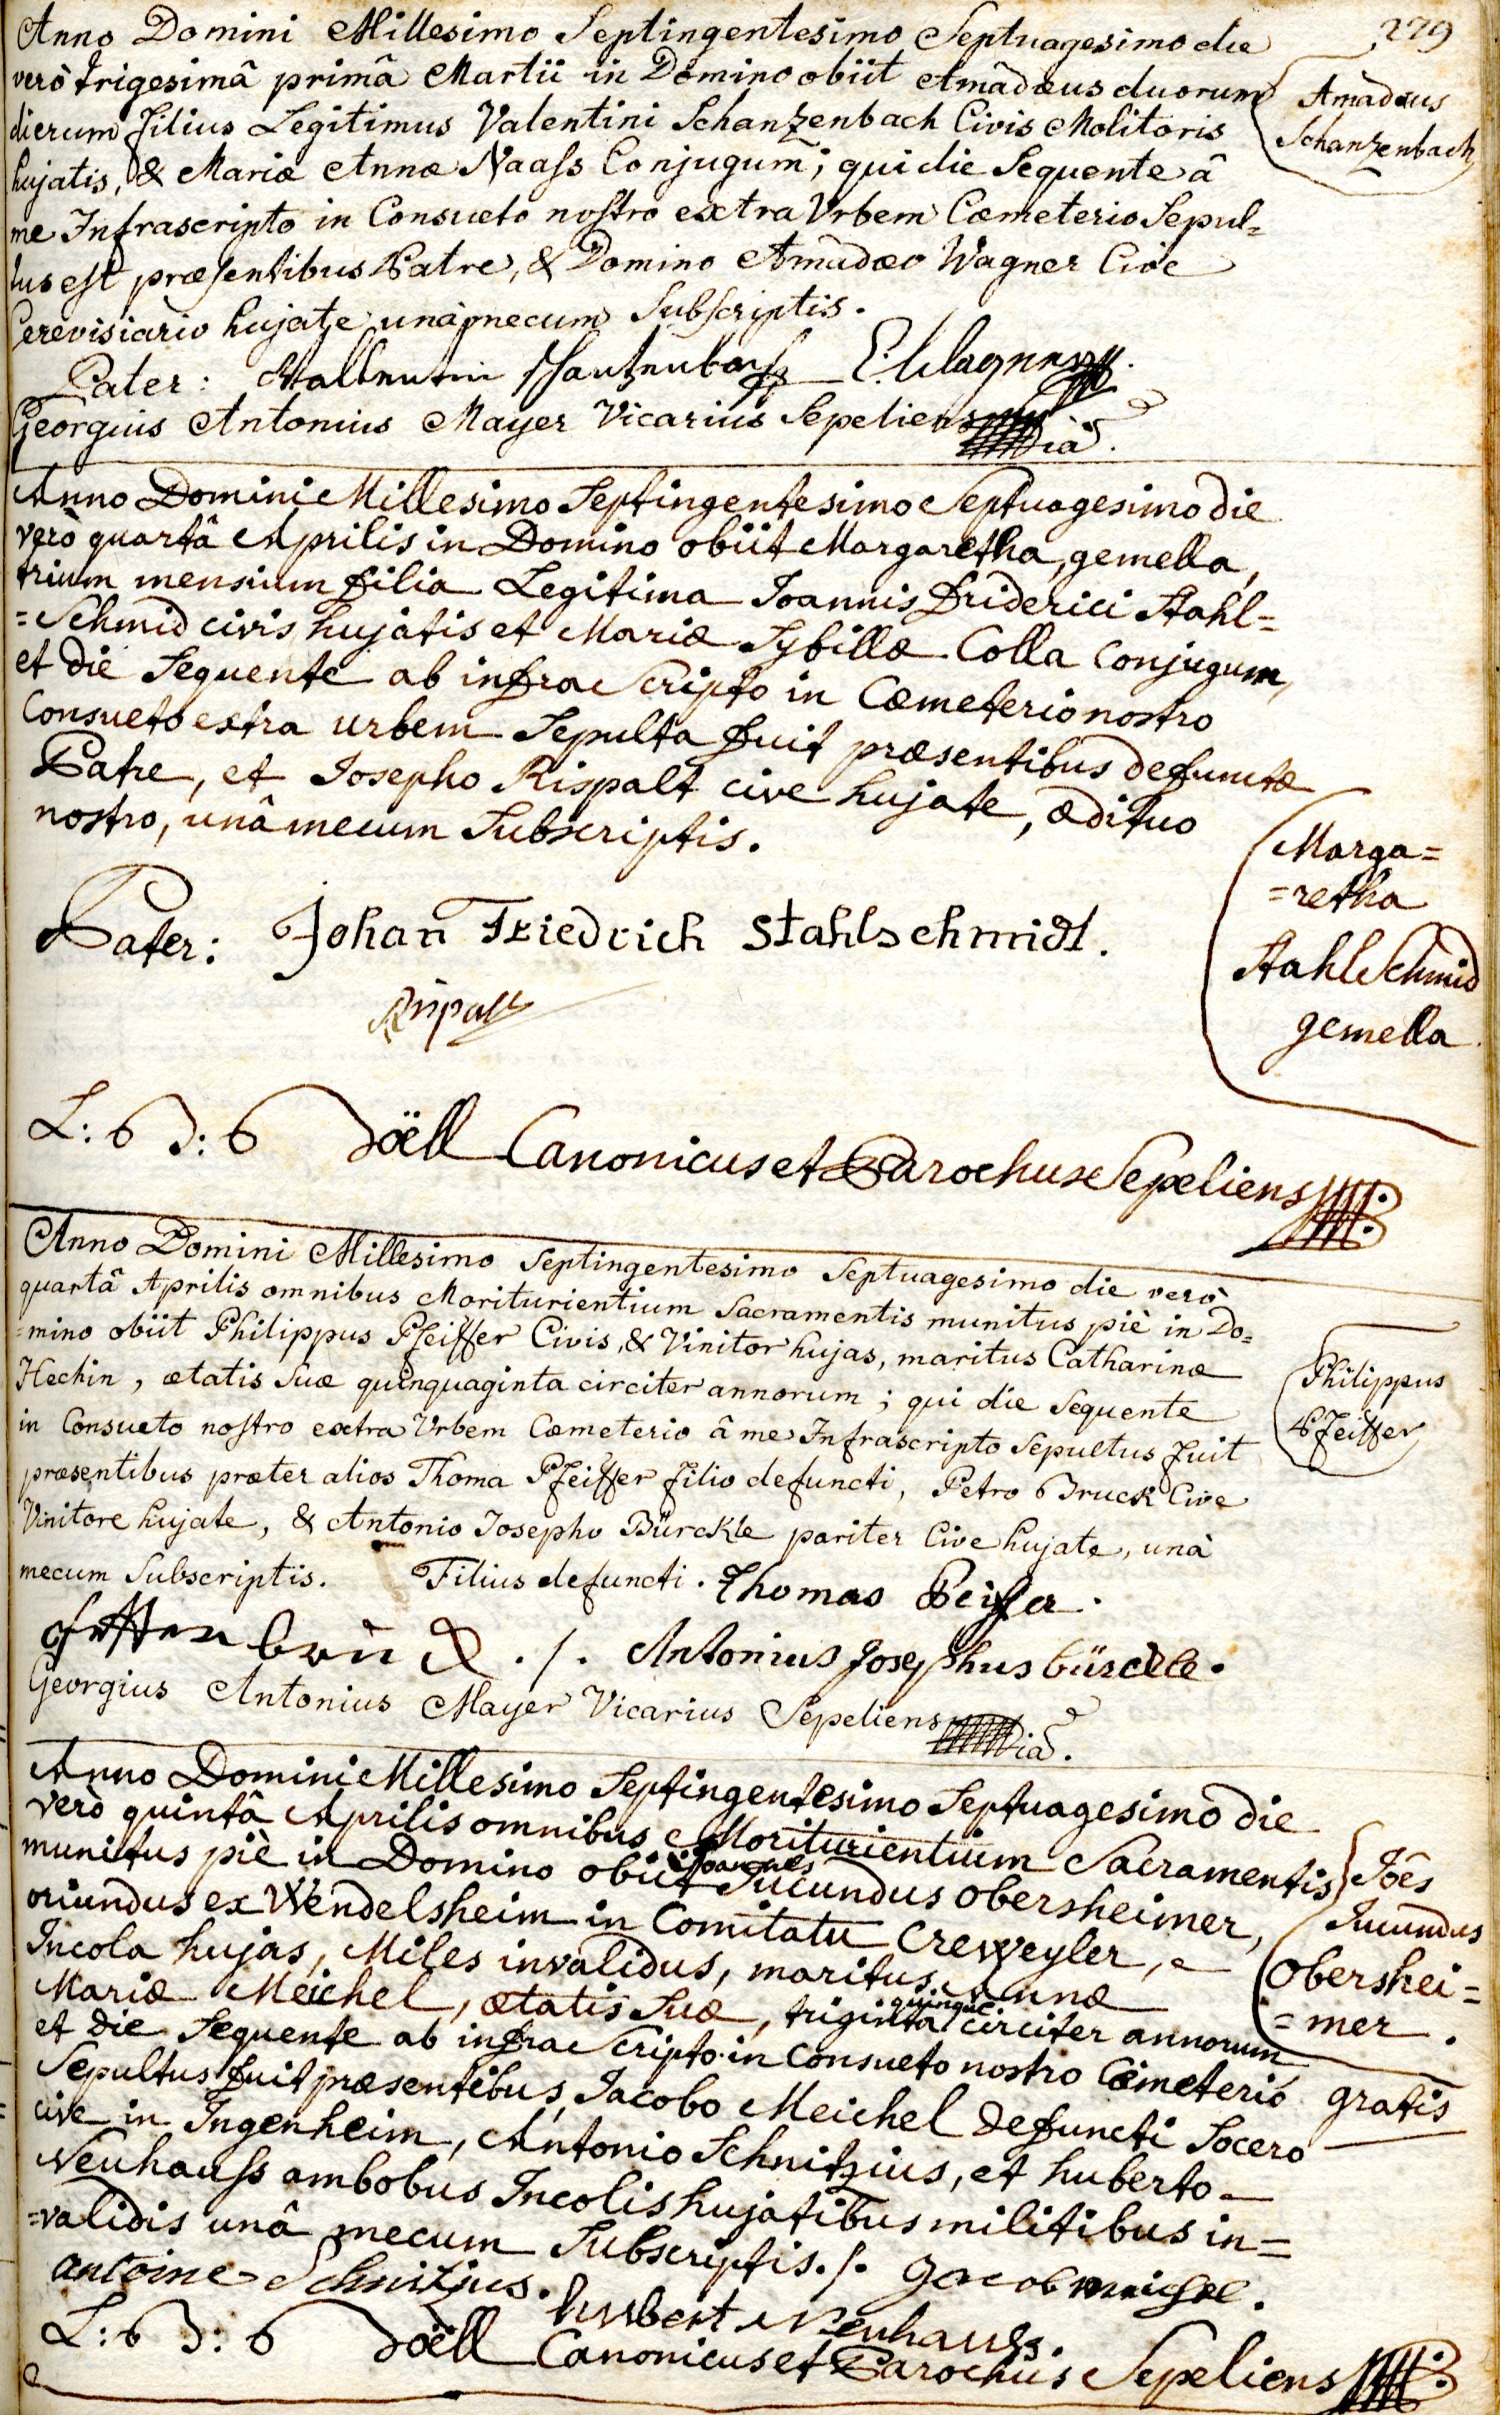 279
Anno Domini Millesimo Septingentesimo Septuagesimo die
verò trigesimâ primâ Martii in Domino obiit Amadæus duorum
dierum filius Legitimus Valentini Schanzenbach Civis Molitoris
hujatis, & Mariæ Annæ Naass Conjugum; qui die Sequente â
me Infrascripto in Consueto nostro extra Vrbem Cœmeterio Sepul=
tus est præsentibus Patre, & Domino Amadæo Wagner Cive
Cerevisiario hujate unà mecum Subscriptis.
Amadæus
Schanzenbach
Pater: Schantzenbach Wagner
Georgius Antonius Mayer Vicarius Sepeliens
Anno Domini Millesimo Septingentesimo Septuagesimo die
verò quartâ Aprilis in Domino obiit Margaretha, gemella,
trium mensium filia Legitima Joannis Friderici Stahl=
=Schmid civis hujatis et Mariæ Sybillæ Colla Conjugum,
et die Sequente ab infra Scripto in Cœmeterio nostro
Consueto extra urbem Sepulta fuit præsentibus defunctæ
Patre, et Josepho Rispalt cive hujate, ædituo
nostro, unâ mecum Subscriptis.
Marga=
=retha
Stahl Schmid
gemella
Pater: Johan Friedrich Stahlschmidt.
Rispalt
L: B D: B Doëll Canonicus et Parochus Sepeliens
Anno Domini Millesimo Septingentesimo Septuagesimo die verò
quartâ Aprilis omnibus Moriturientium Sacramentis munitus piè in Do=
=mino obiit Philippus Pfeiffer Civis, & Vinitor hujas, maritus Catharinæ
Hechin, ætatis Suæ quinquaginta circiter annorum; qui die Sequente
in Consueto nostro extra Vrbem Cœmeterio â me Infrascripto Sepultus fuit
præsentibus præter alios Thoma Pfeiffer filio defuncti, Petro Bruck Cive
Vinitore hujate, & Antonio Josepho Bürckle pariter Cive hujate, unà
mecum Subscriptis. Filius defuncti. Thomas Peifer.
Philippus
Pfeiffer
./. Antonius Josephus bürckle.
Georgius Antonius Mayer Vicarius Sepeliens
Anno Domini Millesimo Septingentesimo Septuagesimo die
verò quintâ Aprilis omnibus Moriturientium Sacramentis
munitus piè in Domino obiit Joannes Jucundus Obersheimer,
oriundus ex Wendelsheim in Comitatu Creweyler,
Incola hujas, Miles invalidus, maritus Annæ
Mariæ Meichel, ætatis Suæ, triginta quinque circiter annorum
et die Sequente ab infra Scripto in Consueto nostro Cœmeterio
Sepultus fuit præsentibus, Jacobo Meichel defuncti Socero
cive in Ingenheim, Antonio Schnitzius, et huberto
Neuhauss ambobus Incolis hujatibus militibus in=
=validis unâ mecum Subscriptis./. Jacob meichel.
Joês
Jucundus
Obershei=
=mer.
gratis
antoine Schnitzius.
hubert Neuhauss.
L: B D: B Doëll Canonicus et Parochus Sepeliens